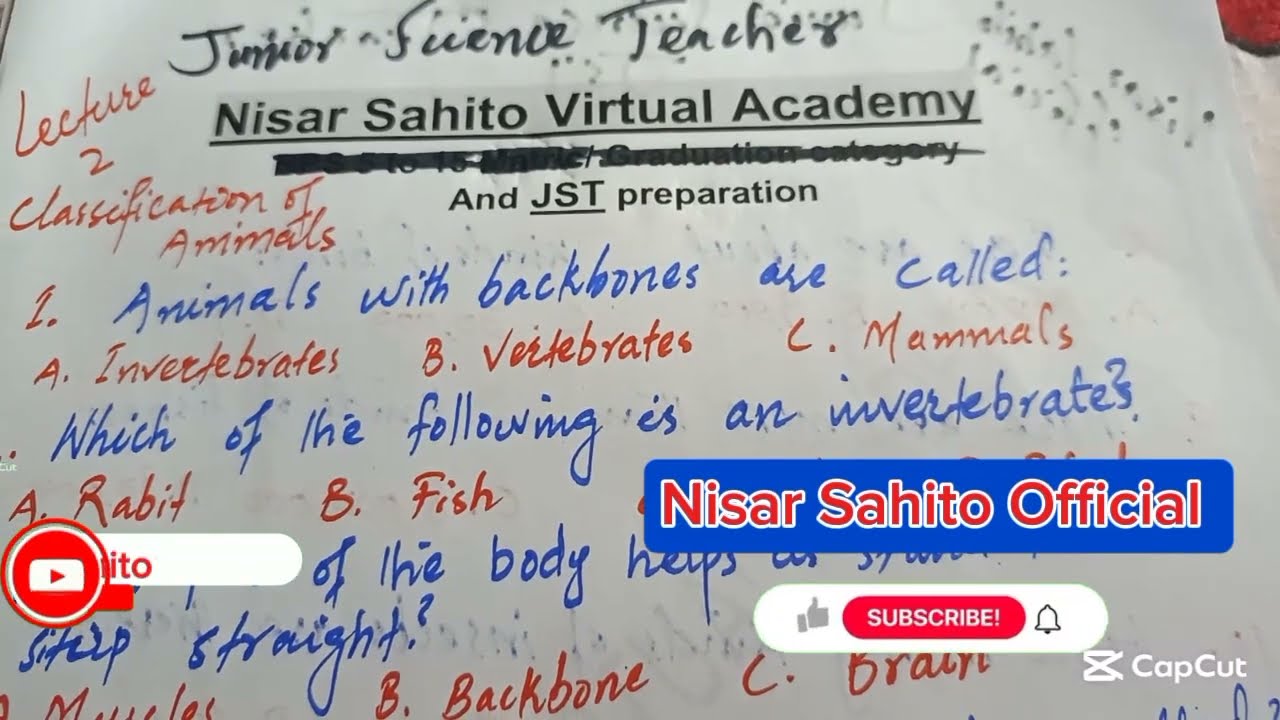 Junior Science Teacher
Lecture
2
Nisar Sahito Virtual Academy
Graduation category
And JST preparation
Classification of
Animals
1. Animals with backbones are called:
A. Invertebrates B. Vertebrates C. Mammals
Which of the following is an invertebrates?
A. Rabit B. Fish
Nisar Sahito Official
of the body helps
straight?
B. Backbone C. Brain
SUBSCRIBE!
CapCut